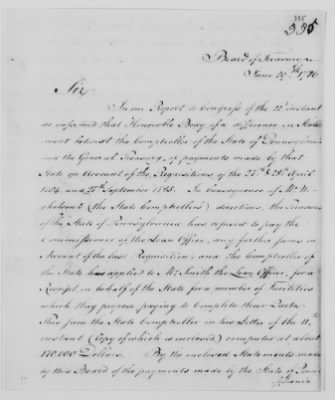 335
Board of Treasury
June 29th 1786
Sir
In our Report to Congress of the 22d instant
we informed that Honorable Body of a difference in State
ment between the Comptroller of the State of Pennsylvania
and the General Treasury, of payments made by that
State on Account of the Requisitions of the 27th & 28th April
1784 and 27th September 1785. In Consequence of Mr. Ni-
cholson's (the State Comptrollers) directions, the Treasurer
of the State of Pennsylvania has refused to pay the
Commissioner of the Loan Office, any further sums in
Account of the last Requisition; and the Comptroller of
the State has applied to Mr. Smith the Loan Officer, for a
Receipt in behalf of the State for a number of Facilities
which they propose paying to Complete their Quota.
This sum the State Comptroller in his Letter of the 11th
instant (Copy of which is enclosed) computes at about
120,000 Dollars. By the enclosed Statements made
by this Board of the payments made by the State of Penn-
sylvania